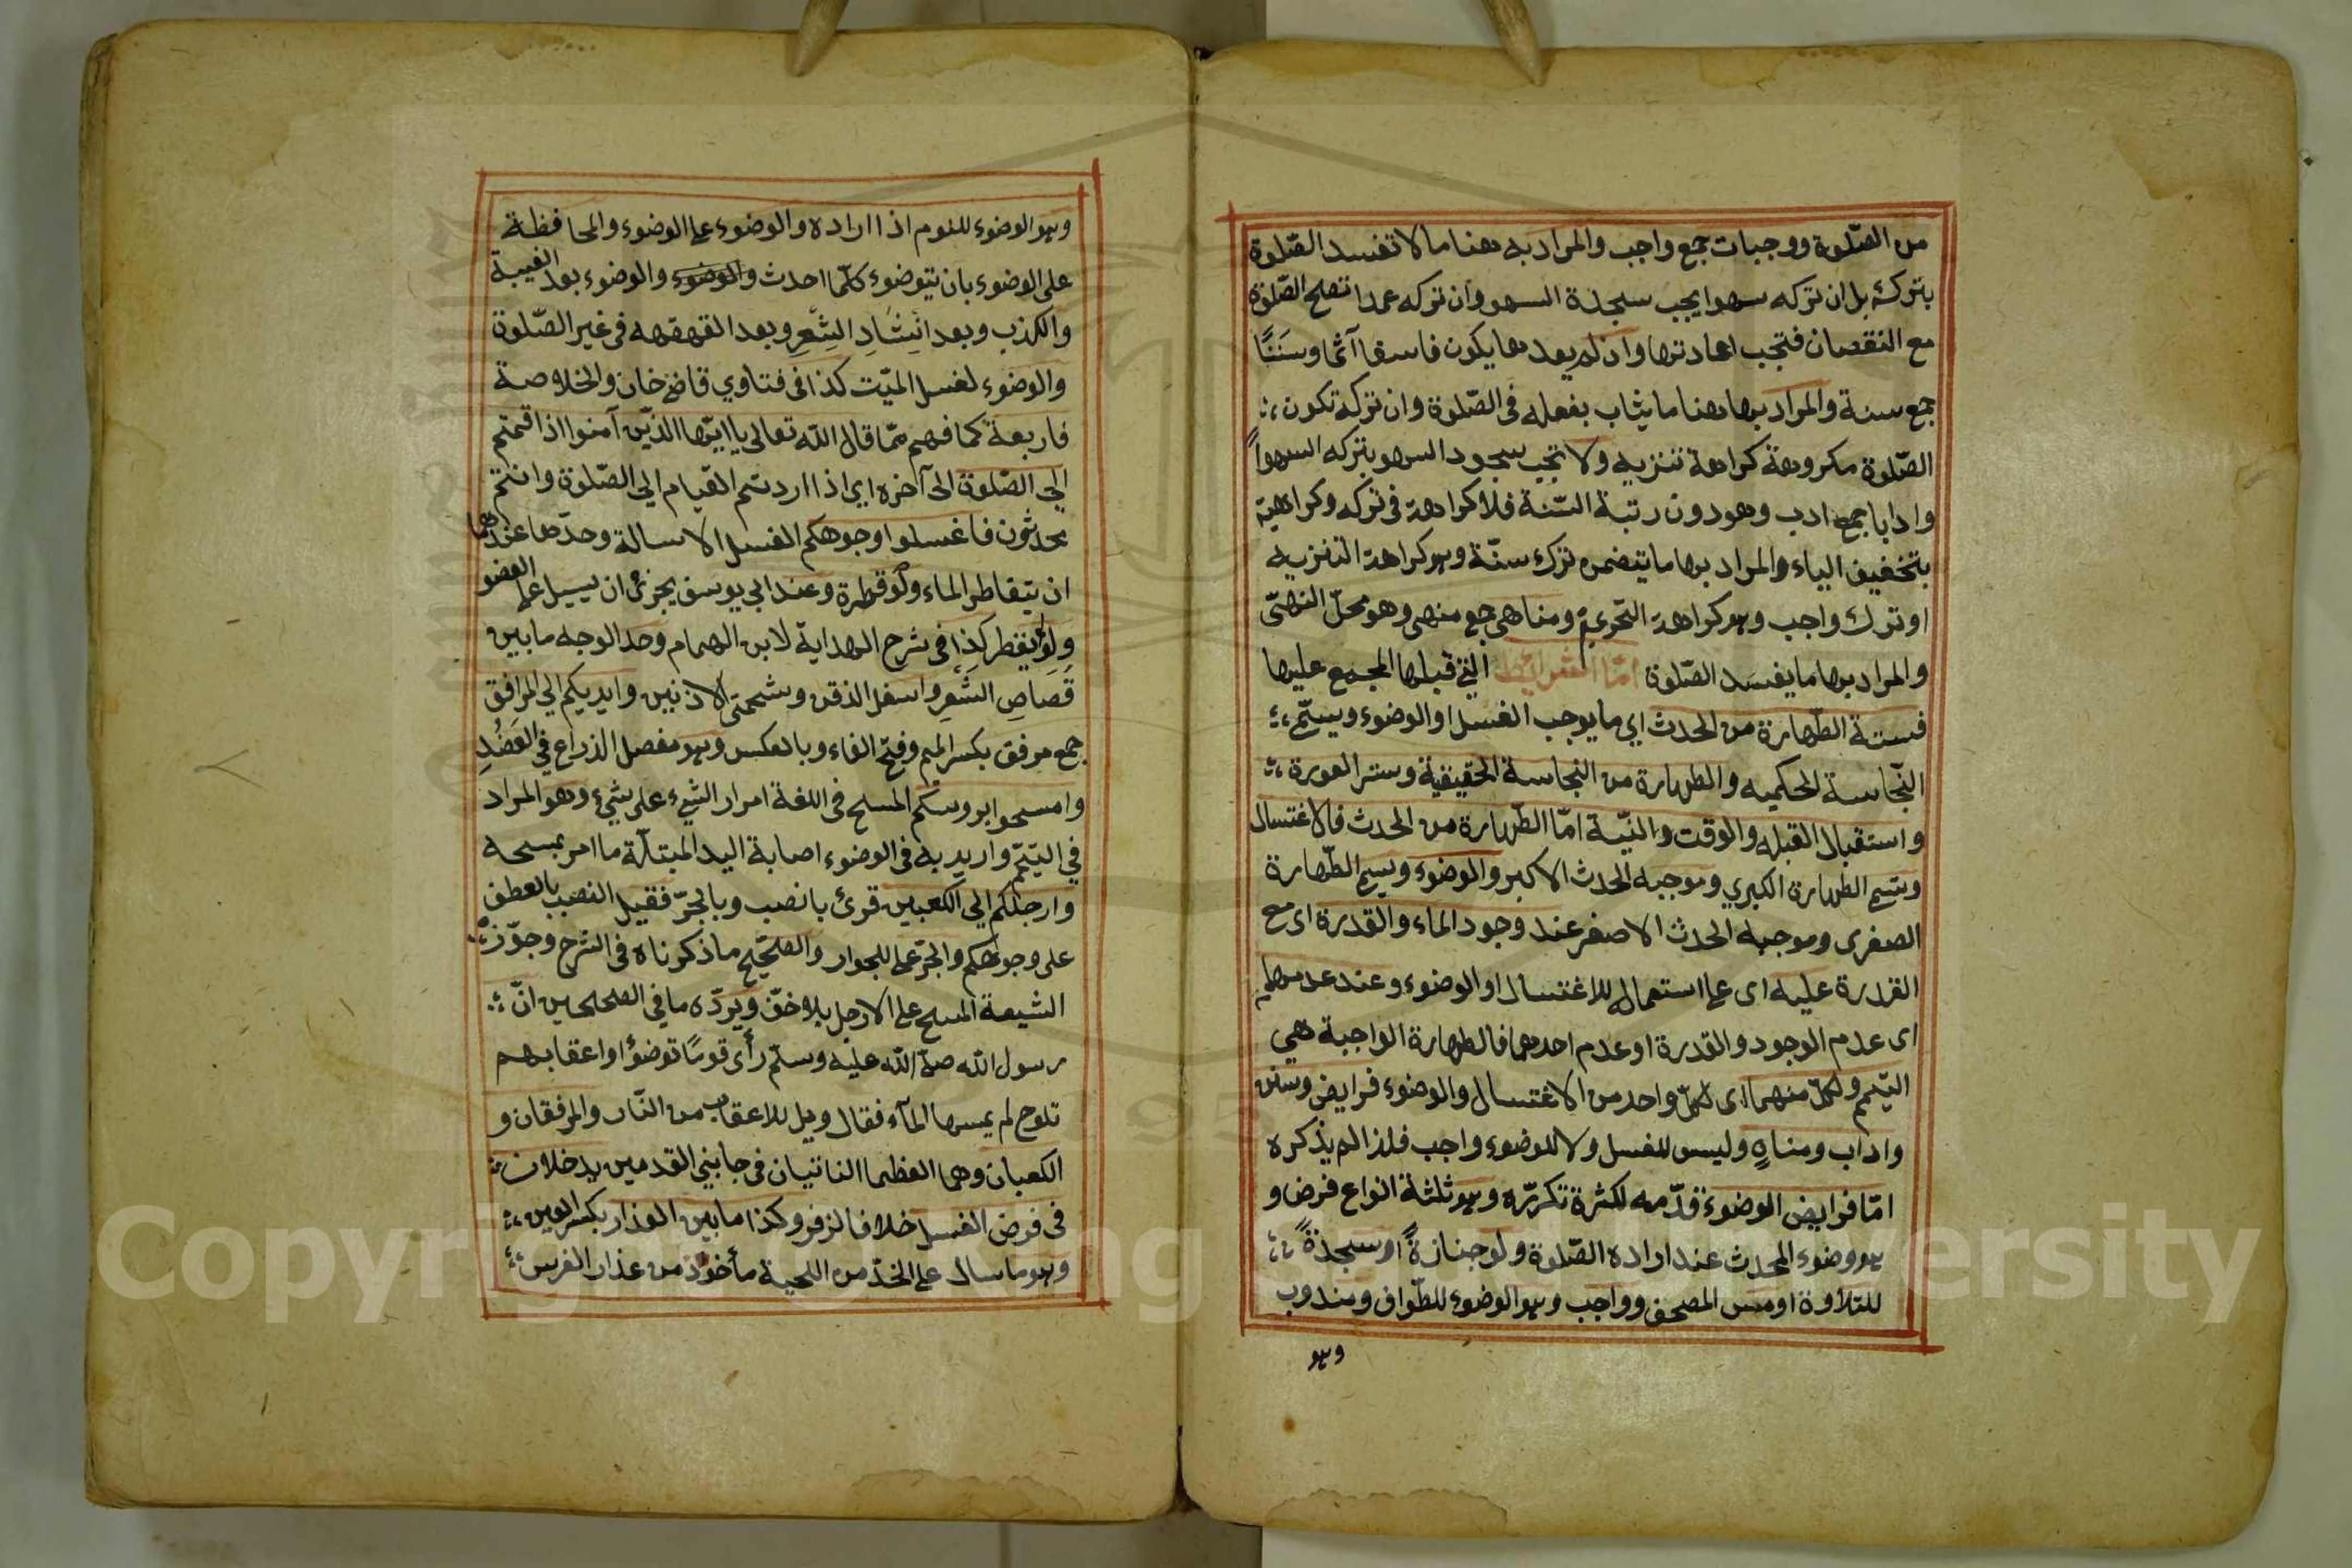 من الصّلوة ووجبات جمع واجب والمراد به هنا ما لا تفسد الصّلوة
بتركه بل ان تركه سهوا يجب سجدة السهو وان تركه عمدا تصلح الصّلوة
مع النقصان فتجب اعادتها وان لم يعدها يكون فاسقا آثما وسَنَنًا
جمع سنة والمراد بها هنا ما يثاب بفعله فى الصّلوة وان تركه تكون
الصّلوة مكروهة كراهة تنزيه ولا تجب سجود السهو بتركه السهواً
وادابا جمع ادب وهو دون رتبة السّنة فلا كراهة فى تركه وكراهية
بتخفيف الياء والمراد بها ما يتضمن ترك سنّة وهو كراهة التنزيه
او ترك واجب وهو كراهة التحريم ومناهى جمع منهى وهو محلّ النهىّ
والمراد بها ما يفسد الصّلوة امّا الشرائط التي قبلها المجمع عليها
فستة الطّهارة من الحدث اي ما يوجب الغسل او الوضوء ويسمّى
النّجاسة الحكميه والطهارة من النجاسة الحقيقية وستر العورة
واستقبال القبله والوقت والنيّة امّا الطّهارة من الحدث فالاغتسال
ويسمى الطهارة الكبري وموجبه الحدث الاكبر والوضوء ويسمى الطّهارة
الصغرى وموجبه الحدث الاصغر عند وجود الماء والقدرة اى مع
القدرة عليه اى على استعماله للاغتسال او الوضوء وعند عدمهما
اى عدم الوجود والقدرة او عدم احدهما فالطهارة الواجبة هي
التيمم ولكلّ منهما اى لكلّ واحد من الاغتسال والوضوء فرايض وسنن
واداب ومناهٍ وليس للغسل ولا للوضوء واجب فلذا لم يذكره
امّا فرايض الوضوء قدّمه لكثرة تكررّه وهو ثلثة انواع فرض و
هو وضوء المحدث عند اراده الصّلوة ولو جنازةً او سجدةً
للتلاوة او مس المصحف وواجب وهو الوضوء للطّواف ومندوب
وهو
وهو الوضوء للنوم اذا اراده والوضوء على الوضوء والمحافظة
على الوضوء بان يتوضوء كلّما احدث والوضوء والوضوء بعد الغيبة
والكذب وبعد انِشَادِ الشِّعرِ وبعد القهقهه فى غير الصّلوة
والوضوء لغسل الميّت كذا فى فتاوي قاضى خان والخلاصة
فاربعة كما فهم ممّا قال اللّه تعالى يا ايّها الذّين آمنوا اذا قمتم
الى الصّلوة الى آخره اي اذا اردتم القيام الى الصّلوة وانتم
محدثون فاغسلوا وجوهكم الغسل الاسالة وحدّها عندهما
ان يتقاطر الماء ولو قطرة وعند ابي يوسف يجزئ ان يسيل على العضو
ولو لم يقطر كذا فى شرح الهداية لابن الهمام وحد الوجه ما بين
قَصَاصِ الشَّعرِ واسفل الذقن وشحمتى الاذنين وايديكم الي المرافق
جمع مرفق بكسر الميم وفتح الفاء وبالعكس وهو مفصل الذراع في العَضُدِ
وامسحوا برءوسكم المسلح فى اللغة امرار الشيء على شيء وهو المراد
في التيّمم واريد به فى الوضوء اصابة اليد المبتلّة ما امر بمسحه
وارجلكم الي الكعبين قرئ بانصب وبالجرّ فقيل النصب بالعطف
على وجوهكم والجرّ على للجوار والصّحيح ما ذكرناه فى الشرح وجوّز
الشيعة المسح على الارجل بلا خفّ ويردّه ما في الصحيحين انّ
رسول اللّه صلى اللّه عليه وسلّم رأى قومًا توضؤا واعقابهم
تلوح لم يمسها المآء فقال ويل للاعقاب من النّار والمرفقان و
الكعبان وهما العظما الناتيان فى جانبي القدمين يدخلان
فى فرض الغسل خلافا لزفر وكذا ما بين العذار بكسر العين
وهو ما سال على الخدّ من اللحية مأخوذ من عذار الفرس